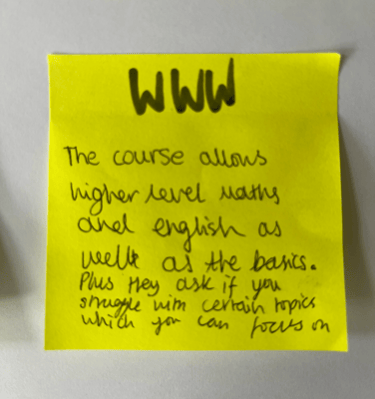 WWW
The course allows
higher level maths
and english as
well as the basics.
Plus they ask if you
struggle with certain topics
which you can focus on